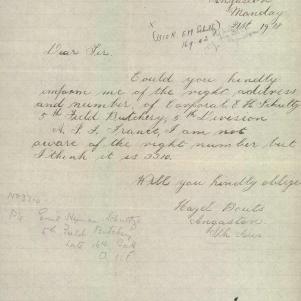 Angaston
Monday
21st 1918
x
(3310 R. E H Schultz
16-9-62
Dear Sir,
Could you kindly
inform me of the right address
and number, of Corporal E. H. Schultz
5th Field Butchery, 5th Division
A. I. F. France, I am not
aware of the right number but
I think it is 3310.
Will you kindly oblige
Hazel Douts
Angaston
Sth Aus
No 3310
Pte Emil Herman Schultz
5th Field Butchery
Late 16th Batt
A.I.F